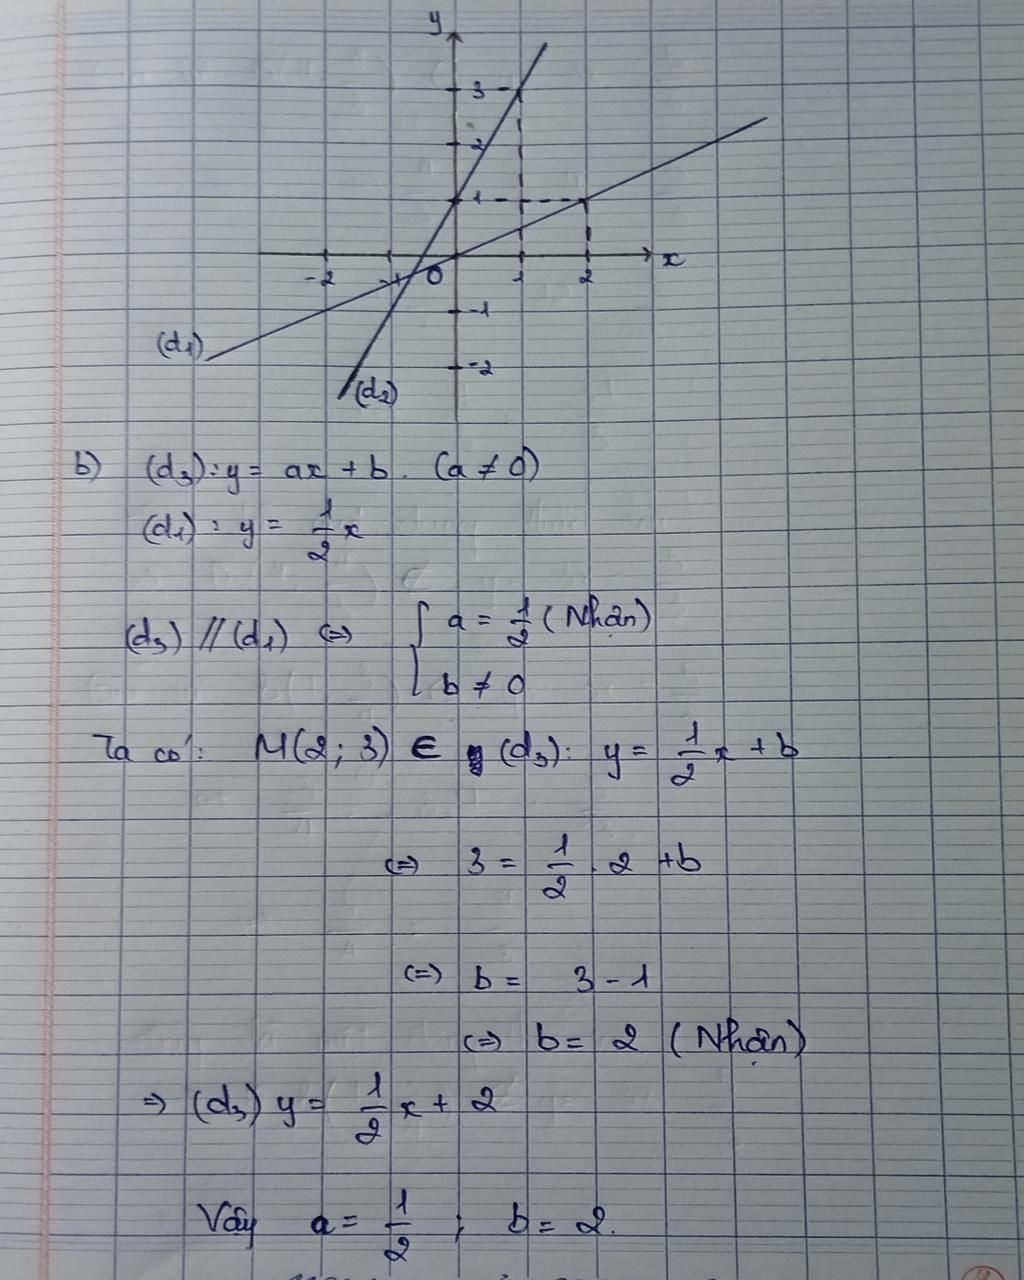 y
3
2
1
-2 -1 O 1 2 x
-1
(d₁)
-2
(d₂)
b) (d₃): y = ax + b. (a ≠ 0)
(d₁): y = 1/2 x
(d₃) // (d₁) ⇔ { a = 1/2 (Nhận)
b ≠ 0
Ta có: M(2; 3) ∈ (d₃): y = 1/2 x + b
⇔ 3 = 1/2 . 2 + b
⇔ b = 3 - 1
⇔ b = 2 (Nhận)
⇒ (d₃) y = 1/2 x + 2
Vậy a = 1/2 ; b = 2.